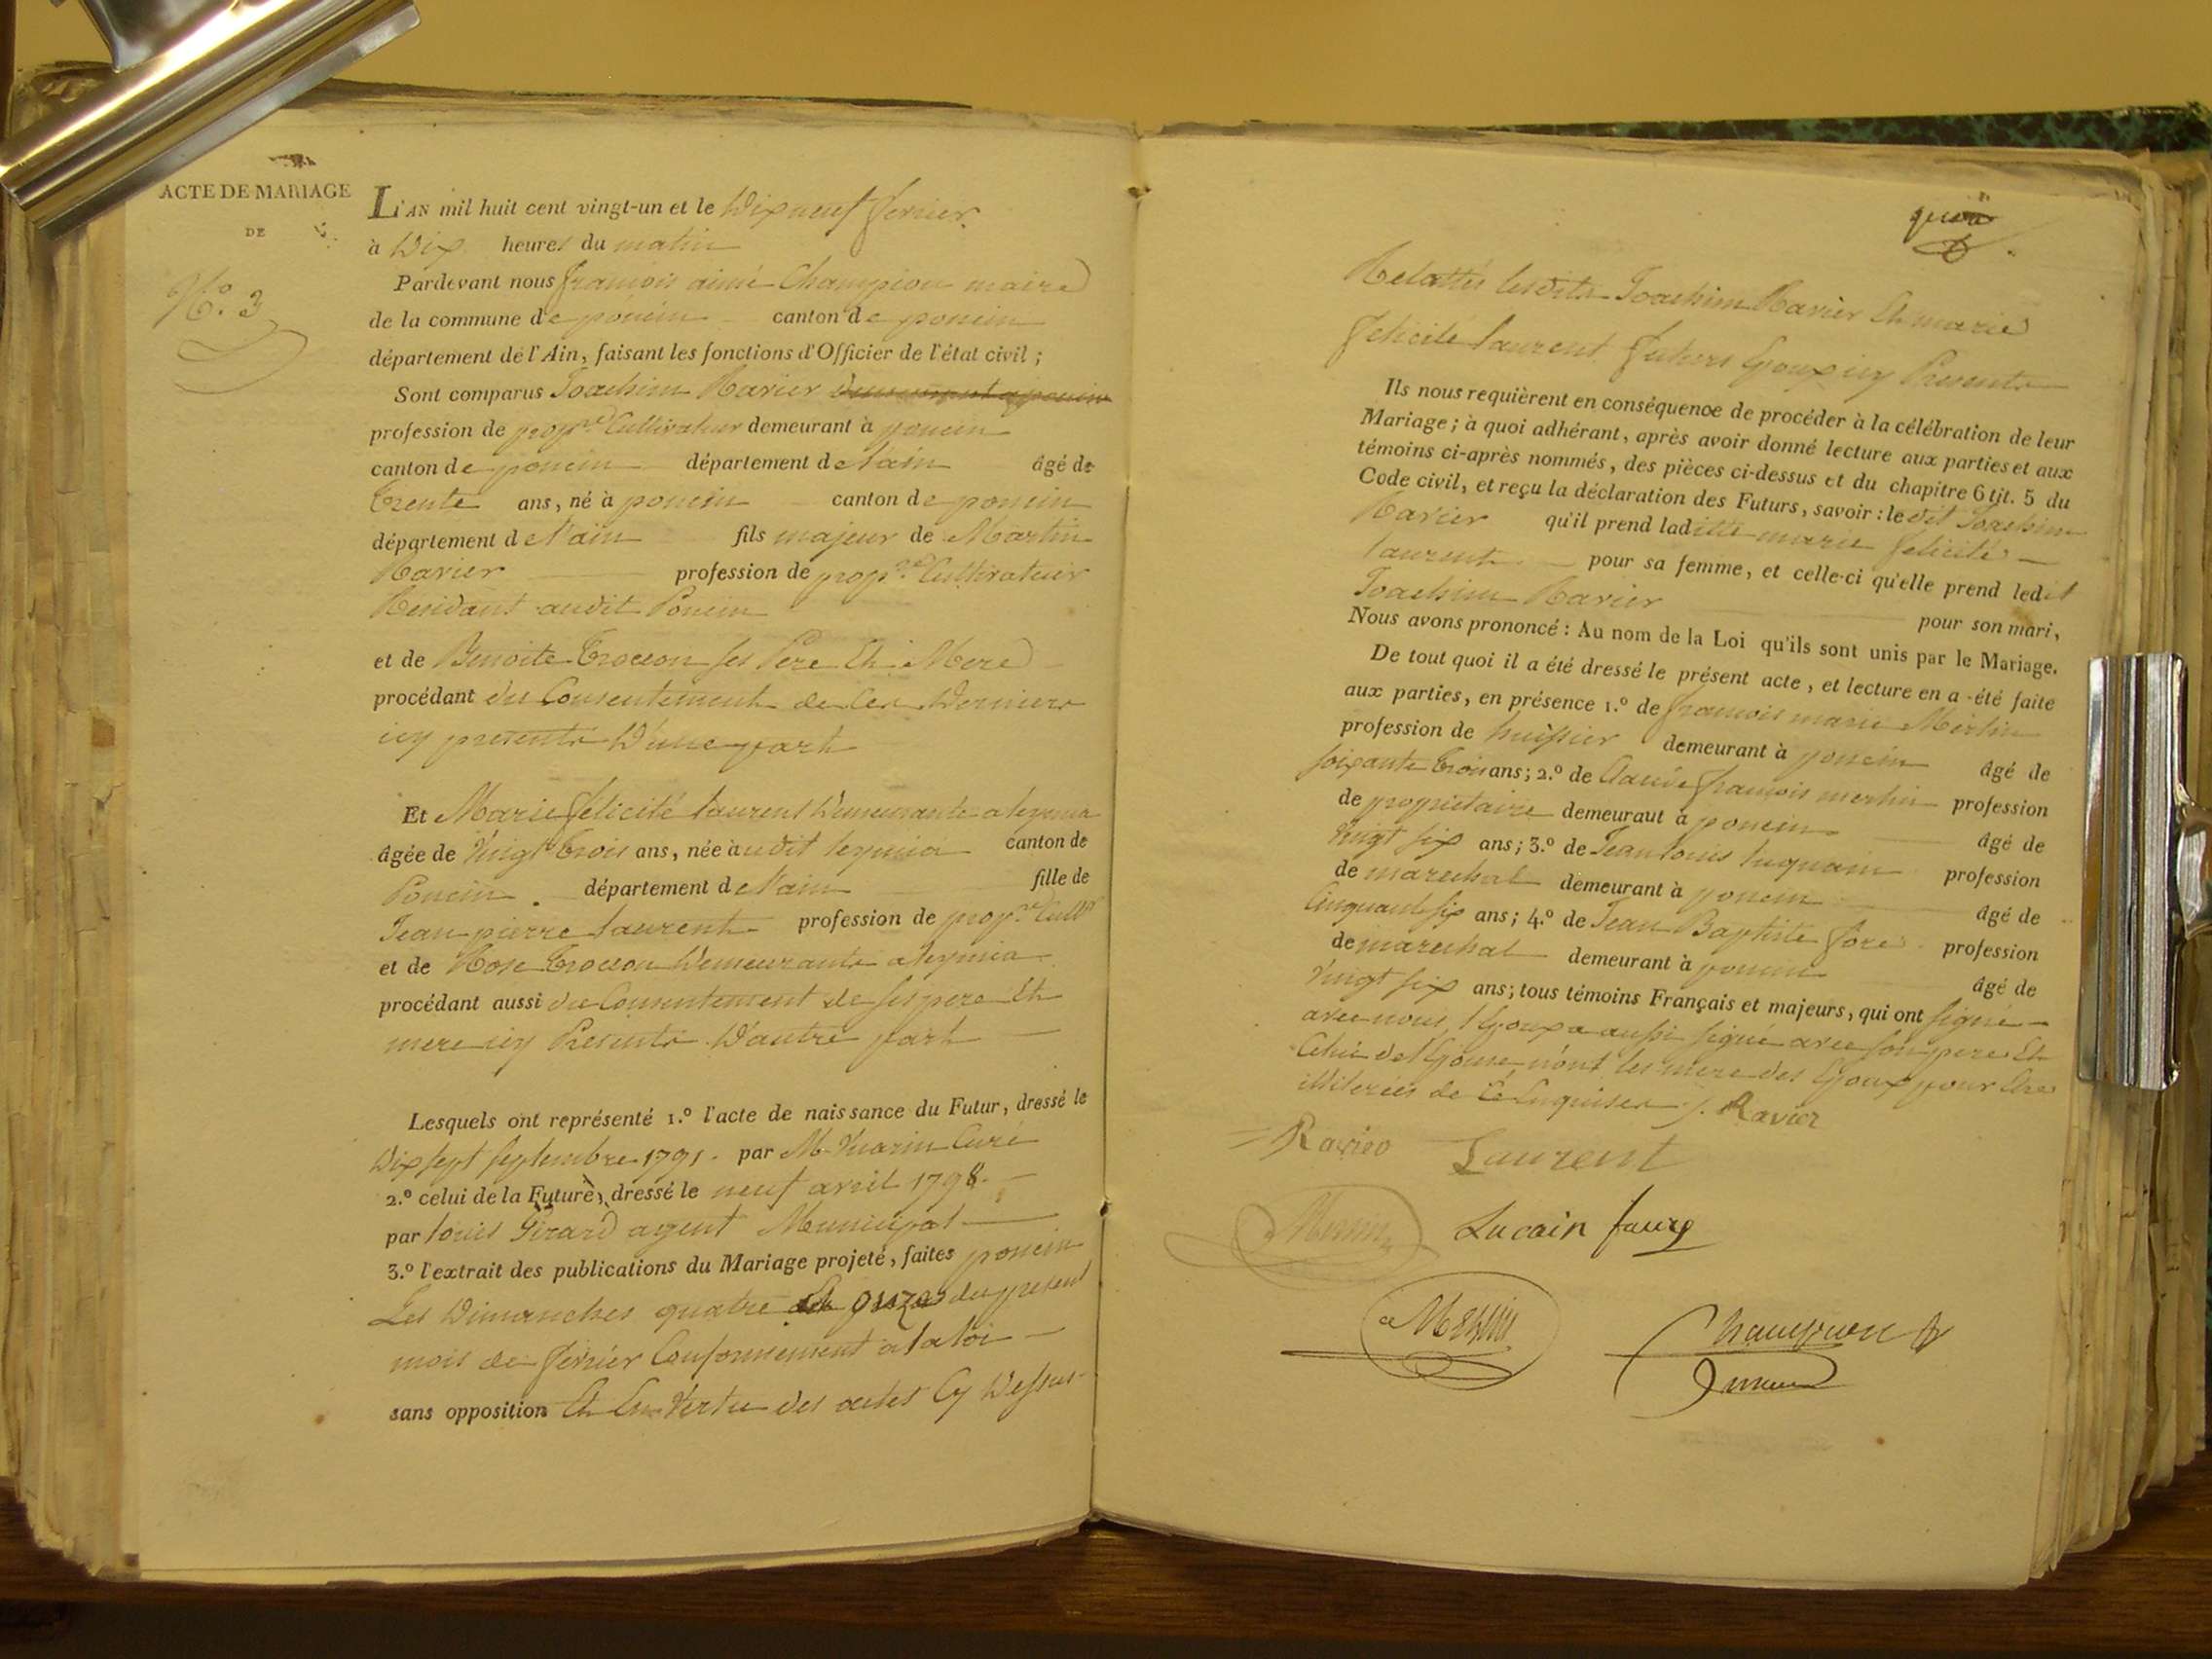 ACTE DE MARIAGE
DE
N.º 3
L'AN mil huit cent vingt-un et le Dix neuf fevrier
à Dix heures du matin
Pardevant nous françois aimé Champion maire
de la commune de poncin canton de poncin
département de l'Ain, faisant les fonctions d'Officier de l'état civil ;
Sont comparus Joachim Ravier
profession de prop.re Cultivateur demeurant à poncin
canton de poncin département de l'ain âgé de
trente ans, né à poncin canton de poncin
département de l'ain fils majeur de Martin
Ravier profession de prop.re Cultivateur
Résidant audit Poncin
et de Benoite Trocson ses Pere Et Mere
procédant du Consentement de Ces Derniers
icy presents D'une part
Et Marie felicité laurent Demeurante a leymia
âgée de Vingt trois ans, née audit leymia canton de
Poncin . département de l'ain fille de
Jean pierre laurent profession de prop.re Cult.r
et de Rose Trocson Demeurants a leymia
procédant aussi du Consentement de ses pere Et
mere icy Presents D'autre part
Lesquels ont représenté 1.º l'acte de naissance du Futur, dressé le
Dix sept septembre 1791. par M. Vuarin Curé
2.º celui de la Future, dressé le neuf avril 1798.
par louis Girard agent Municipal
3.º l'extrait des publications du Mariage projeté, faites poncin
Les Dimanches quatre Et onze du present
mois de fevrier Conformement a la loi
sans opposition Et En Vertu des actes Cy Dessus
Relattés lesdits Joachim Ravier Et marie
felicité laurent futurs Epoux icy Presents
Ils nous requièrent en conséquence de procéder à la célébration de leur
Mariage ; à quoi adhérant, après avoir donné lecture aux parties et aux
témoins ci-après nommés, des pièces ci-dessus et du chapitre 6 tit. 5 du
Code civil, et reçu la déclaration des Futurs, savoir : ledit Joachim
Ravier qu'il prend laditte marie felicité
laurent pour sa femme, et celle-ci qu'elle prend ledit
Joachim Ravier pour son mari,
Nous avons prononcé : Au nom de la Loi qu'ils sont unis par le Mariage.
De tout quoi il a été dressé le présent acte, et lecture en a été faite
aux parties, en présence 1.º de françois marie Merlin
profession de huissier demeurant à poncin âgé de
soixante trois ans ; 2.º de Claude françois merlin profession
de proprietaire demeurant à poncin âgé de
Vingt six ans ; 3.º de Jean louis luquain profession
de marechal demeurant à poncin âgé de
Cinquante six ans ; 4.º de Jean Baptiste fore profession
de marechal demeurant à poncin âgé de
Vingt six ans ; tous témoins Français et majeurs, qui ont signé
avec nous, l'Epoux a aussi signé avec son pere Et
Celui de l'Epouse, n'ont les mere des Epoux pour Etre
illiterées de Ce Enquises J. Ravier
Ravier Laurent
Merlin Lucain faure
Merlin Champion